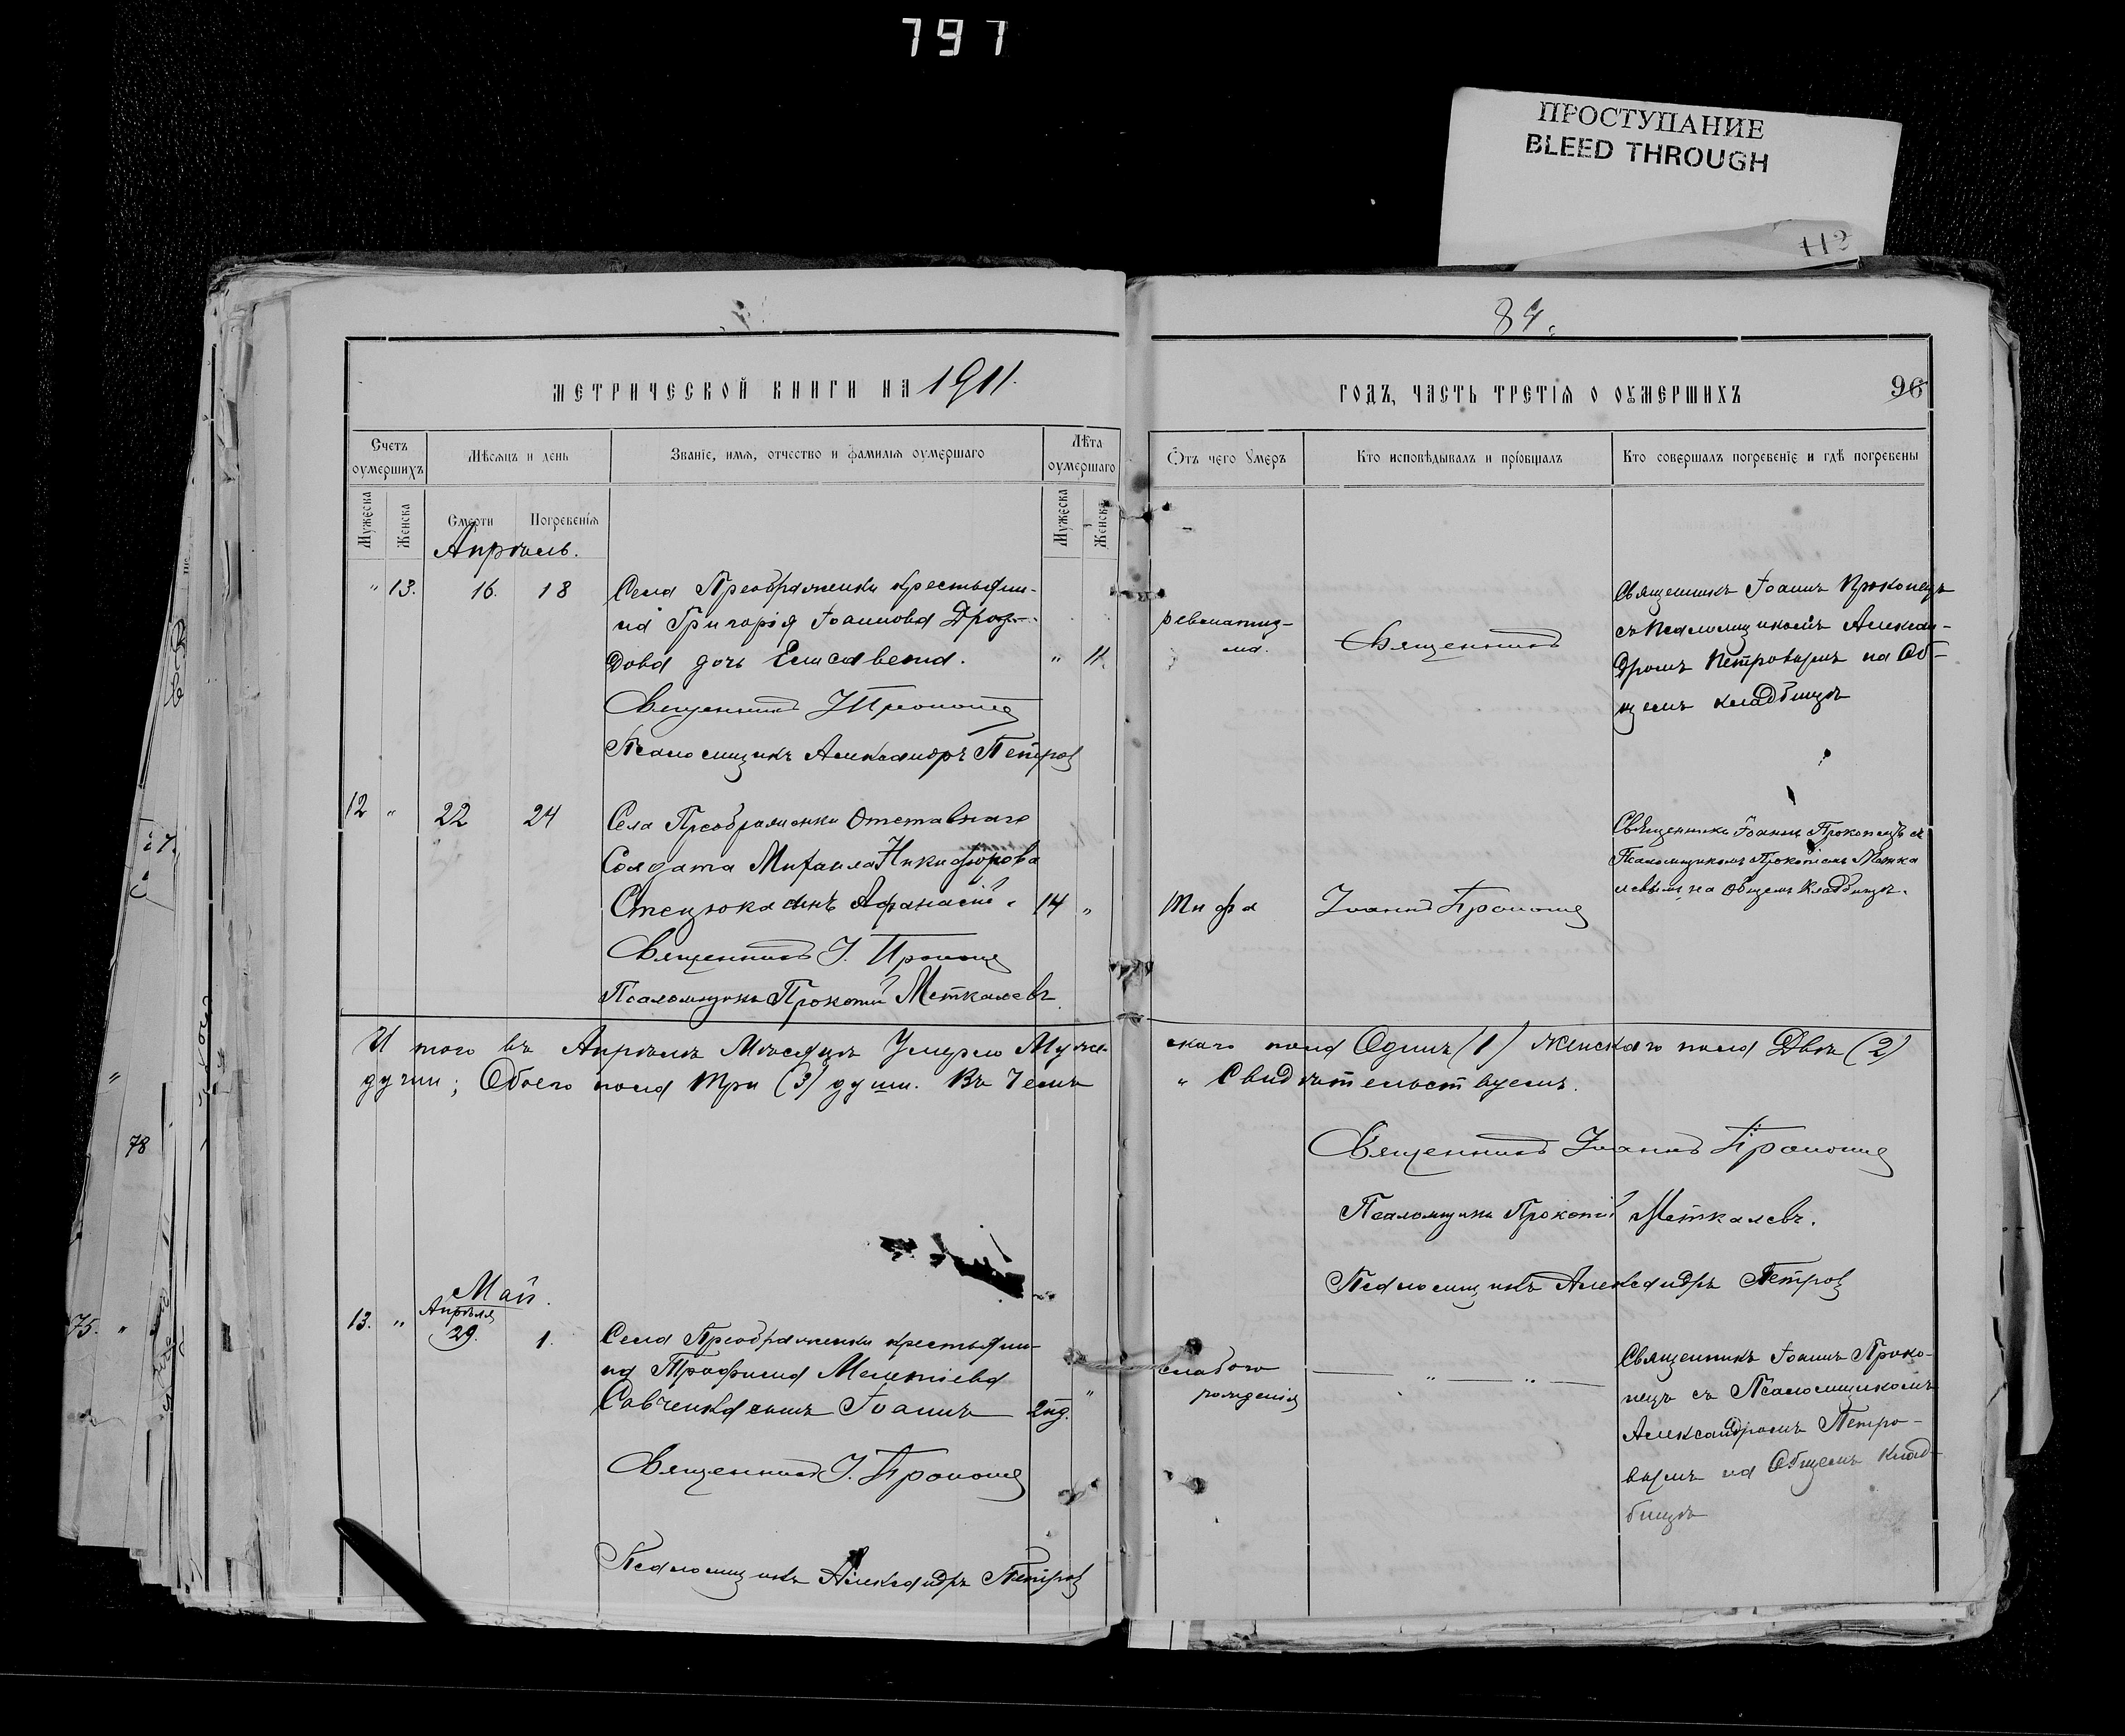 797
ПРОСТУПАНИЕ
BLEED THROUGH
112
84.
МЕТРИЧЕСКОЙ КНИГИ НА 1911.
ГОДЪ, ЧАСТЬ ТРЕТІЯ О ОУМЕРШИХЪ
96
Счетъ оумершихъ
Мѣсяцъ и день
Званіе, имя, отчество и фамилія оумершаго
Лѣта оумершаго
Отъ чего умеръ
Кто исповѣдывалъ и пріобщалъ
Кто совершалъ погребеніе и гдѣ погребены
Мужеска
Женска
Смерти
Погребенія
Мужеска
Женска
Апрѣль.
" 13. 16. 18
Села Преображенки крестьяни-
на Григорія Іоаннова Дроз-
дова дочь Елисавета. " 11.
Священникъ І Прокопецъ
Псаломщикъ Александръ Петровъ
ревматиз-
ма.
Священникъ
Священникъ Іоаннъ Прокопецъ
съ Псаломщикомъ Алексан-
дромъ Петровымъ на Об-
щемъ кладбищѣ
12 " 22 24
Села Преображенки Отставнаго
Солдата Михаила Никифорова
Стецюка сынъ Афанасій. 14 "
Священникъ І. Прокопецъ
Псаломщикъ Прокопій Меткалевъ
Тифа
Іоаннъ Прокопецъ
Священникъ Іоаннъ Прокопецъ съ
Псаломщикомъ Прокопіемъ Метка
левымъ на общемъ Кладбищѣ.
И того въ Апрѣлѣ Мѣсяцѣ Умерло Муже-
скаго пола Одинъ (1) женскаго пола Двѣ (2)
души; Обоего пола три (3) души. Въ Чемъ
" Свидѣтельствуемъ.
Священникъ Іоаннъ Прокопецъ
Псаломщикъ Прокопій Меткалевъ.
Псаломщикъ Александръ Петровъ
Май.
13. " Апрѣля
29. 1.
Села Преображенки крестьяни-
на Трофима Мелетіева
Савченка сынъ Іоаннъ 2 нд. "
Священникъ І. Прокопецъ
Псаломщикъ Александръ Петровъ
слабаго
рожденія
— " — " —
Священникъ Іоаннъ Проко-
пецъ съ Псаломщикомъ
Александромъ Петро-
вымъ на Общемъ Клад-
бищѣ
78
75. "